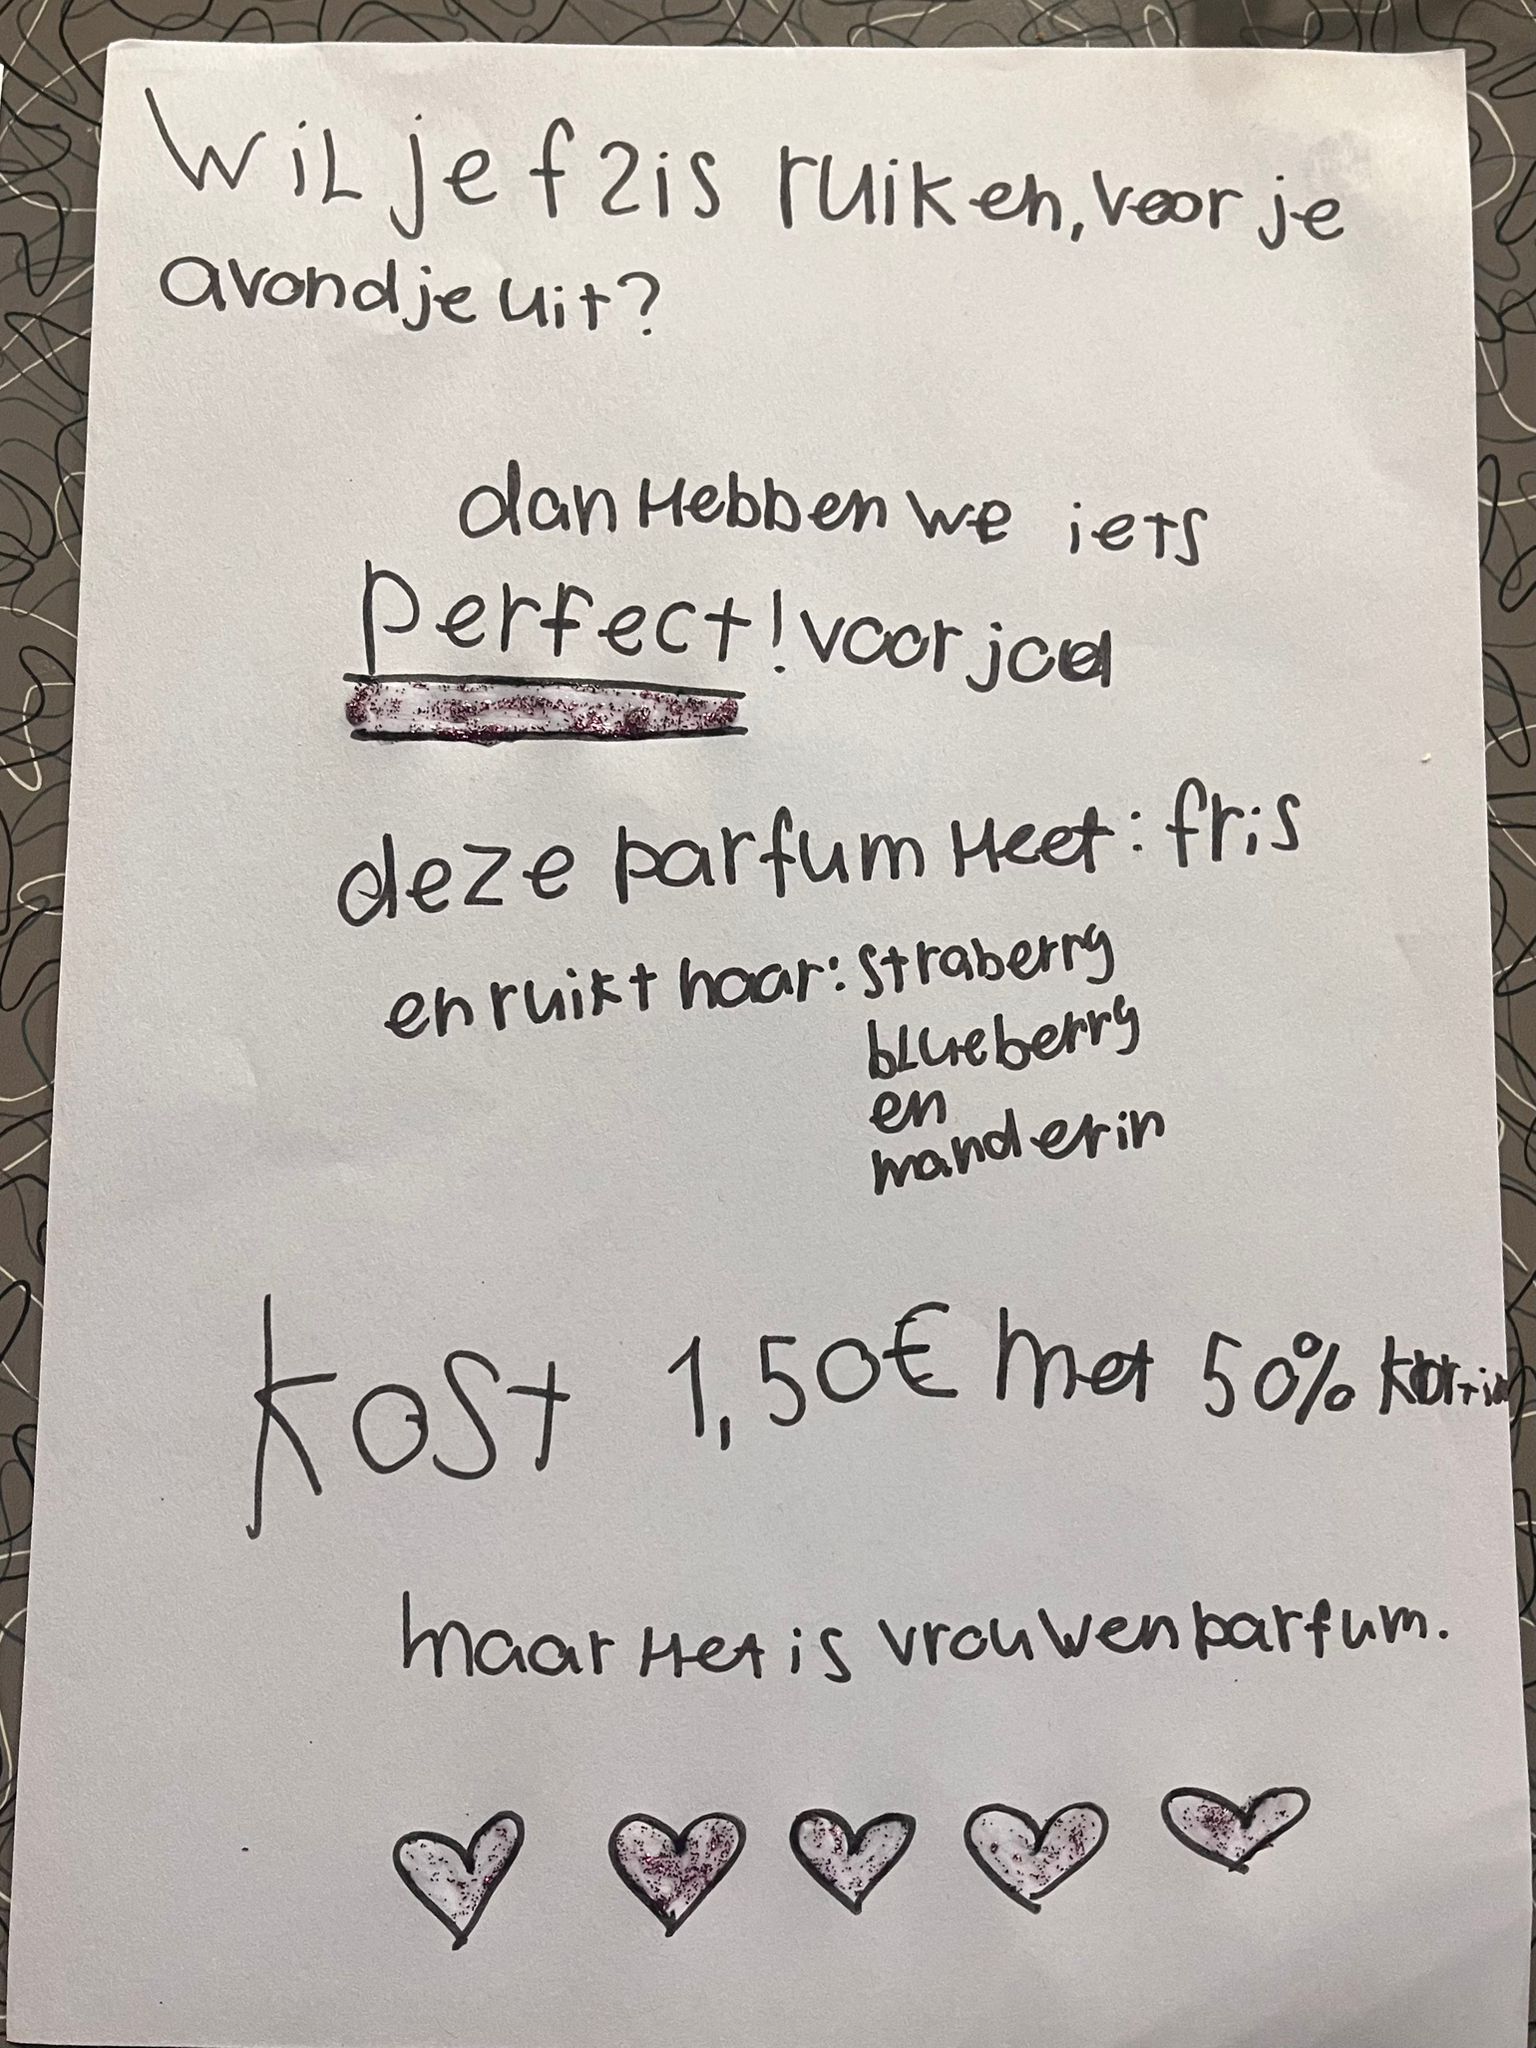 Wil je f2is ruiken, voor je
avondje uit?
dan Hebben we iets
perfect! voor jou
deze parfum Heet: fris
en ruikt naar: straberry
blueberry
en
manderin
kost 1,50€ met 50%
maar Het is vrouwenparfum.